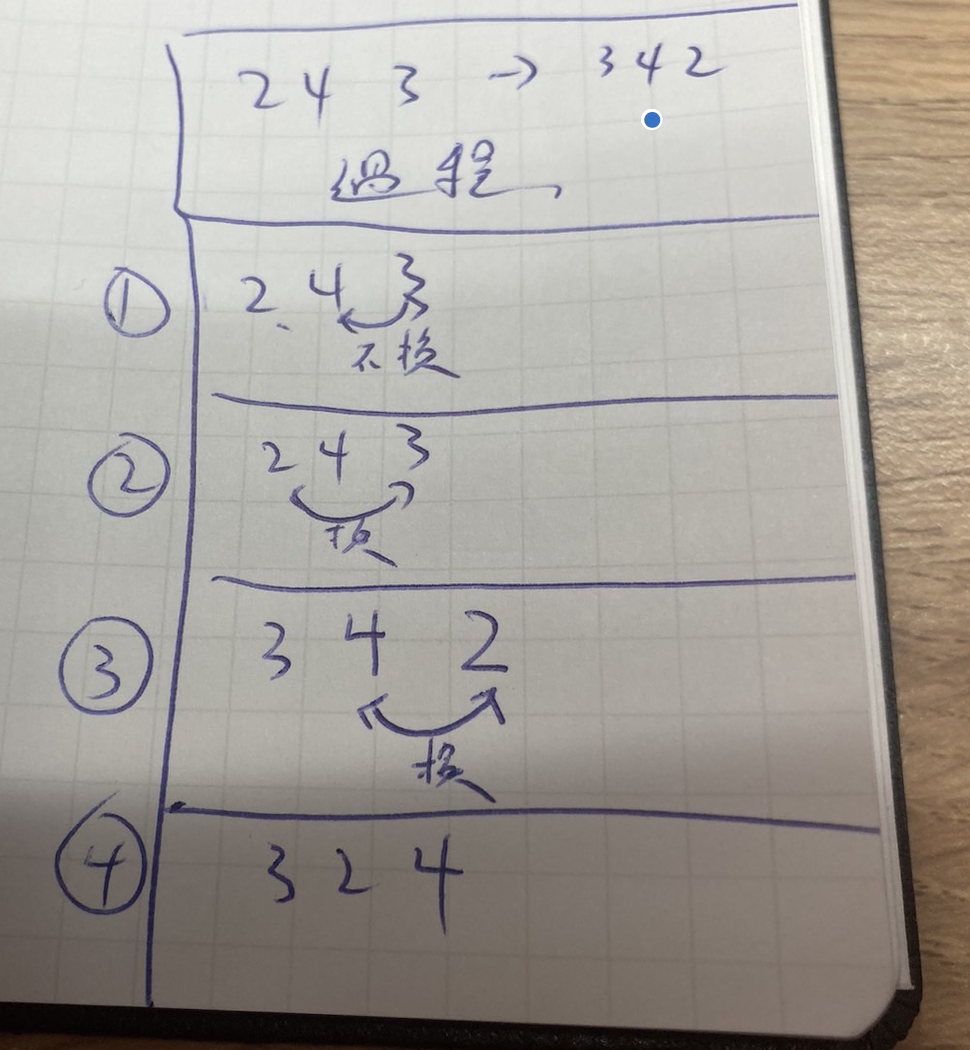 2 4 3 → 3 4 2
过程
① 2 4 3
不换
② 2 4 3
换
③ 3 4 2
换
④ 3 2 4